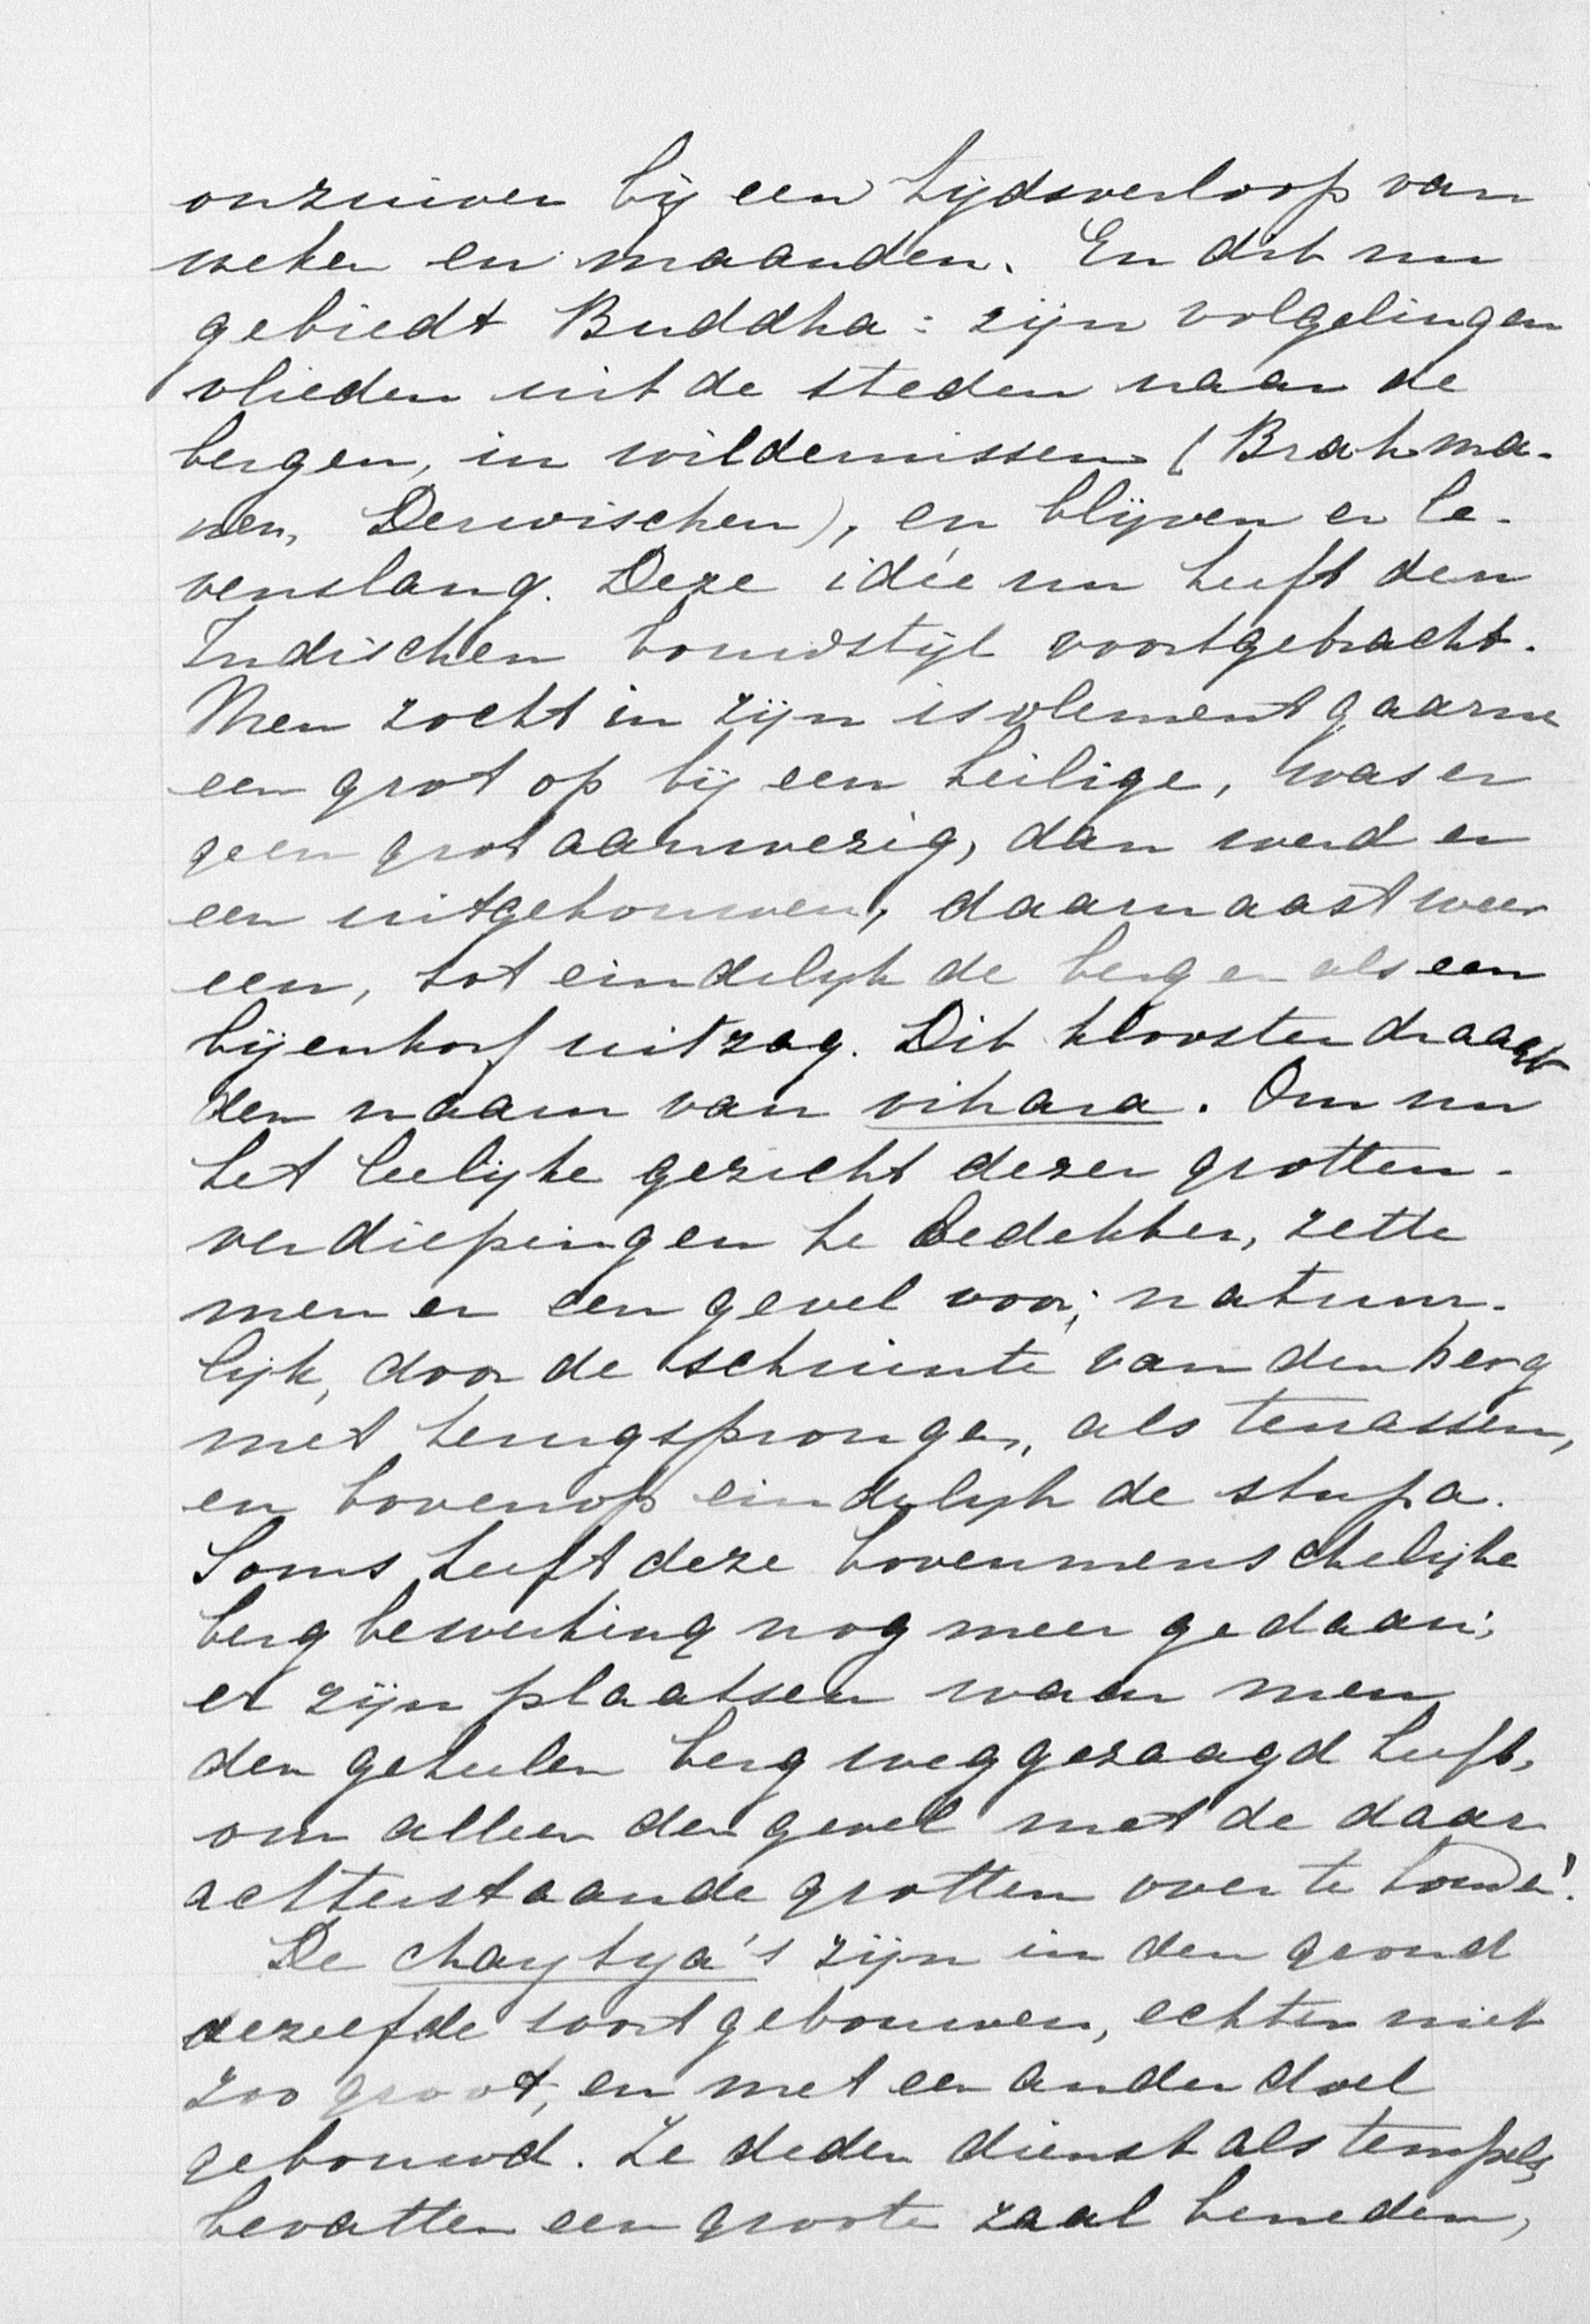 onzuiver bij een tijdsverloop van
weken en maanden. En dit nu
gebiedt Buddha: zijn volgelingen
vlieden uit de steden naar de
bergen, in wildernissen (Brahma-
nen, Derwischen), en blijven er le-
venslang. Deze idée nu heeft den
Indischen bouwstijl voortgebracht.
Men zocht in zijn isolement gaarne
een grot op bij een heilige, was er
geen grot aanwezig, dan werd er
een uitgehouwen, daarnaast weer
een, tot eindelijk de berg er als een
bijenkorf uitzag. Dit klooster draagt
den naam van vihara. Om nu
het leelijke gezicht dezer grotten-
verdiepingen te bedekken, zette
men er een gevel voor; natuur-
lijk, door de schuinte van den berg
met terugsprongen, als terrassen,
en bovenop eindelijk de stupa.
Soms heeft deze bovenmenschelijke
berg bewerking nog meer gedaan;
er zijn plaatsen waar men
den geheelen berg weggezaagd heeft,
om alleen den gevel met de daar
achterstaande grotten over te houden!
De chaytya's zijn in den grond
dezelfde soort gebouwen, echter niet
zoo groot, en met een ander doel
gebouwd. Ze deden dienst als tempels,
bevatten een groote zaal beneden,